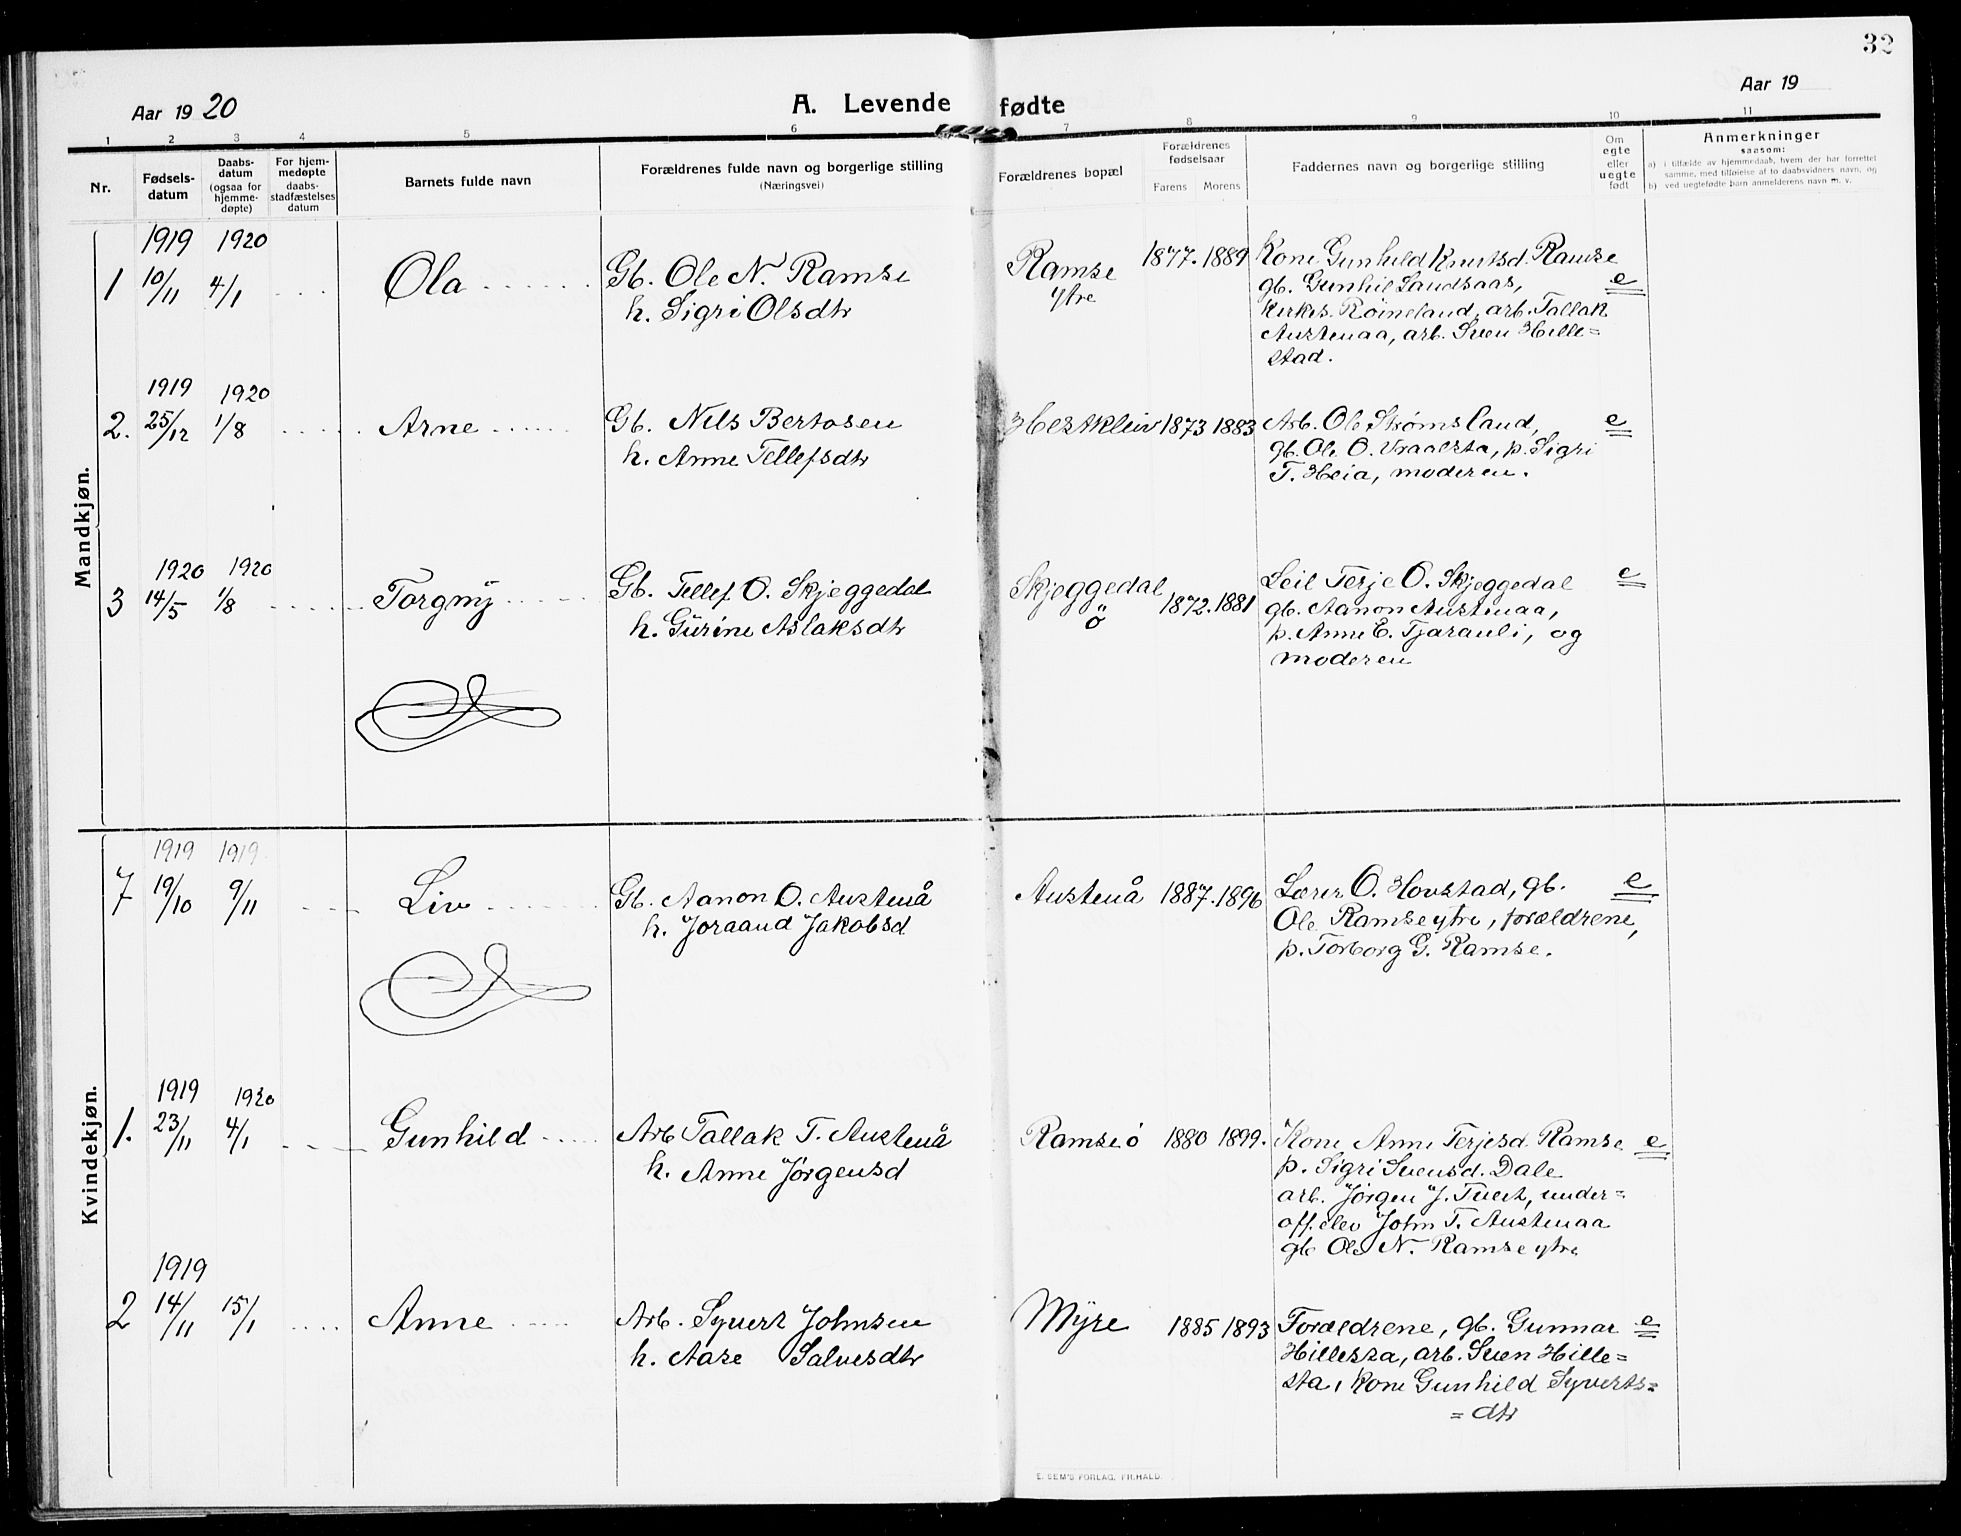 32
Aar 1920
A. Levende fødte
Aar 19
1 2 3 4 5 6 7 8 9 10 11
Nr.
Fødsels-
datum
Daabs-
datum
(ogsaa for
hjemme-
døpte)
For hjem-
medøpte
daabs-
stadfæstelses
datum
Barnets fulde navn
Forældrenes fulde navn og borgerlige stilling
(Næringsvei)
Forældrenes bopæl
Forældrenes
fødselsaar
Farens Morens
Faddernes navn og borgerlige stilling
Om
egte
eller
uegte
født
Anmerkninger
saasom:
a) i tilfælde av hjemmedaab, hvem der har forrettet
samme, med tilføielse af to daabsvidners navn, og
b) ved uegtefødte barn anmelderens navn m. v.
Mandkjøn.
1919 1920
1 10/11 4/1 Ola
Gb. Ole N. Ramse
h. Sigri Olsdtr
Ramse
ytre
1877. 1889
Kone Gunhild Knutsd. Ramse
gb. Gunhil Landsaas,
Kirkes. Røineland, arb. Tallak
Austenaa, arb. Sven Hille=
stad.
e
1919 1920
2. 25/12 1/8 Arne
Gb. Nils Bertosen
h. Anne Tellefsdtr
Hestkleiv 1873 1883
Arb. Ole Strømsland,
gb. Ole O. Vraalsta, p. Sigri
T. Heia, moderen.
e
1920 1920
3 14/5 1/8 Torgny
Gb. Tellef O. Skjeggedal
h. Gurine Aslaksdtr
Skjeggedal
ö
1872. 1881
Leil Terje O. Skjeggedal
gb. Aanon Austenaa,
p. Anne E. Tjarauli, og
moderen
e
Kvindekjøn.
1919 1919
7 19/10 9/11 Liv
Gb. Aanon O. Austenå
h. Joraand Jakobsd
Austenå 1887. 1896
Lærer O. Hovstad, gb.
Ole Ramse ytre, forældrene,
p. Torborg G. Ramse.
e
1919 1920
1. 23/11 4/1 Gunhild
Arb Tallak T. Austenå
h. Anne Jørgensd
Ramse ö 1880 1899.
Kone Anne Terjesd. Ramse
p. Sigri Svensd. Dale
arb. Jørgen J. Tveit, under=
off. elev John T. Austenaa
gb Ole N. Ramse ytre
e
1919
2 14/11 15/1 Anne
Arb. Syvert Johnsen
h. Aase Salvesdtr
Myre 1885 1893
Forældrene, gb. Gunnar
Hillesta, arb. Sven Hille=
sta, Kone Gunhild Syverts=
=dtr
e
E. SEM'S FORLAG, FR.HALD.